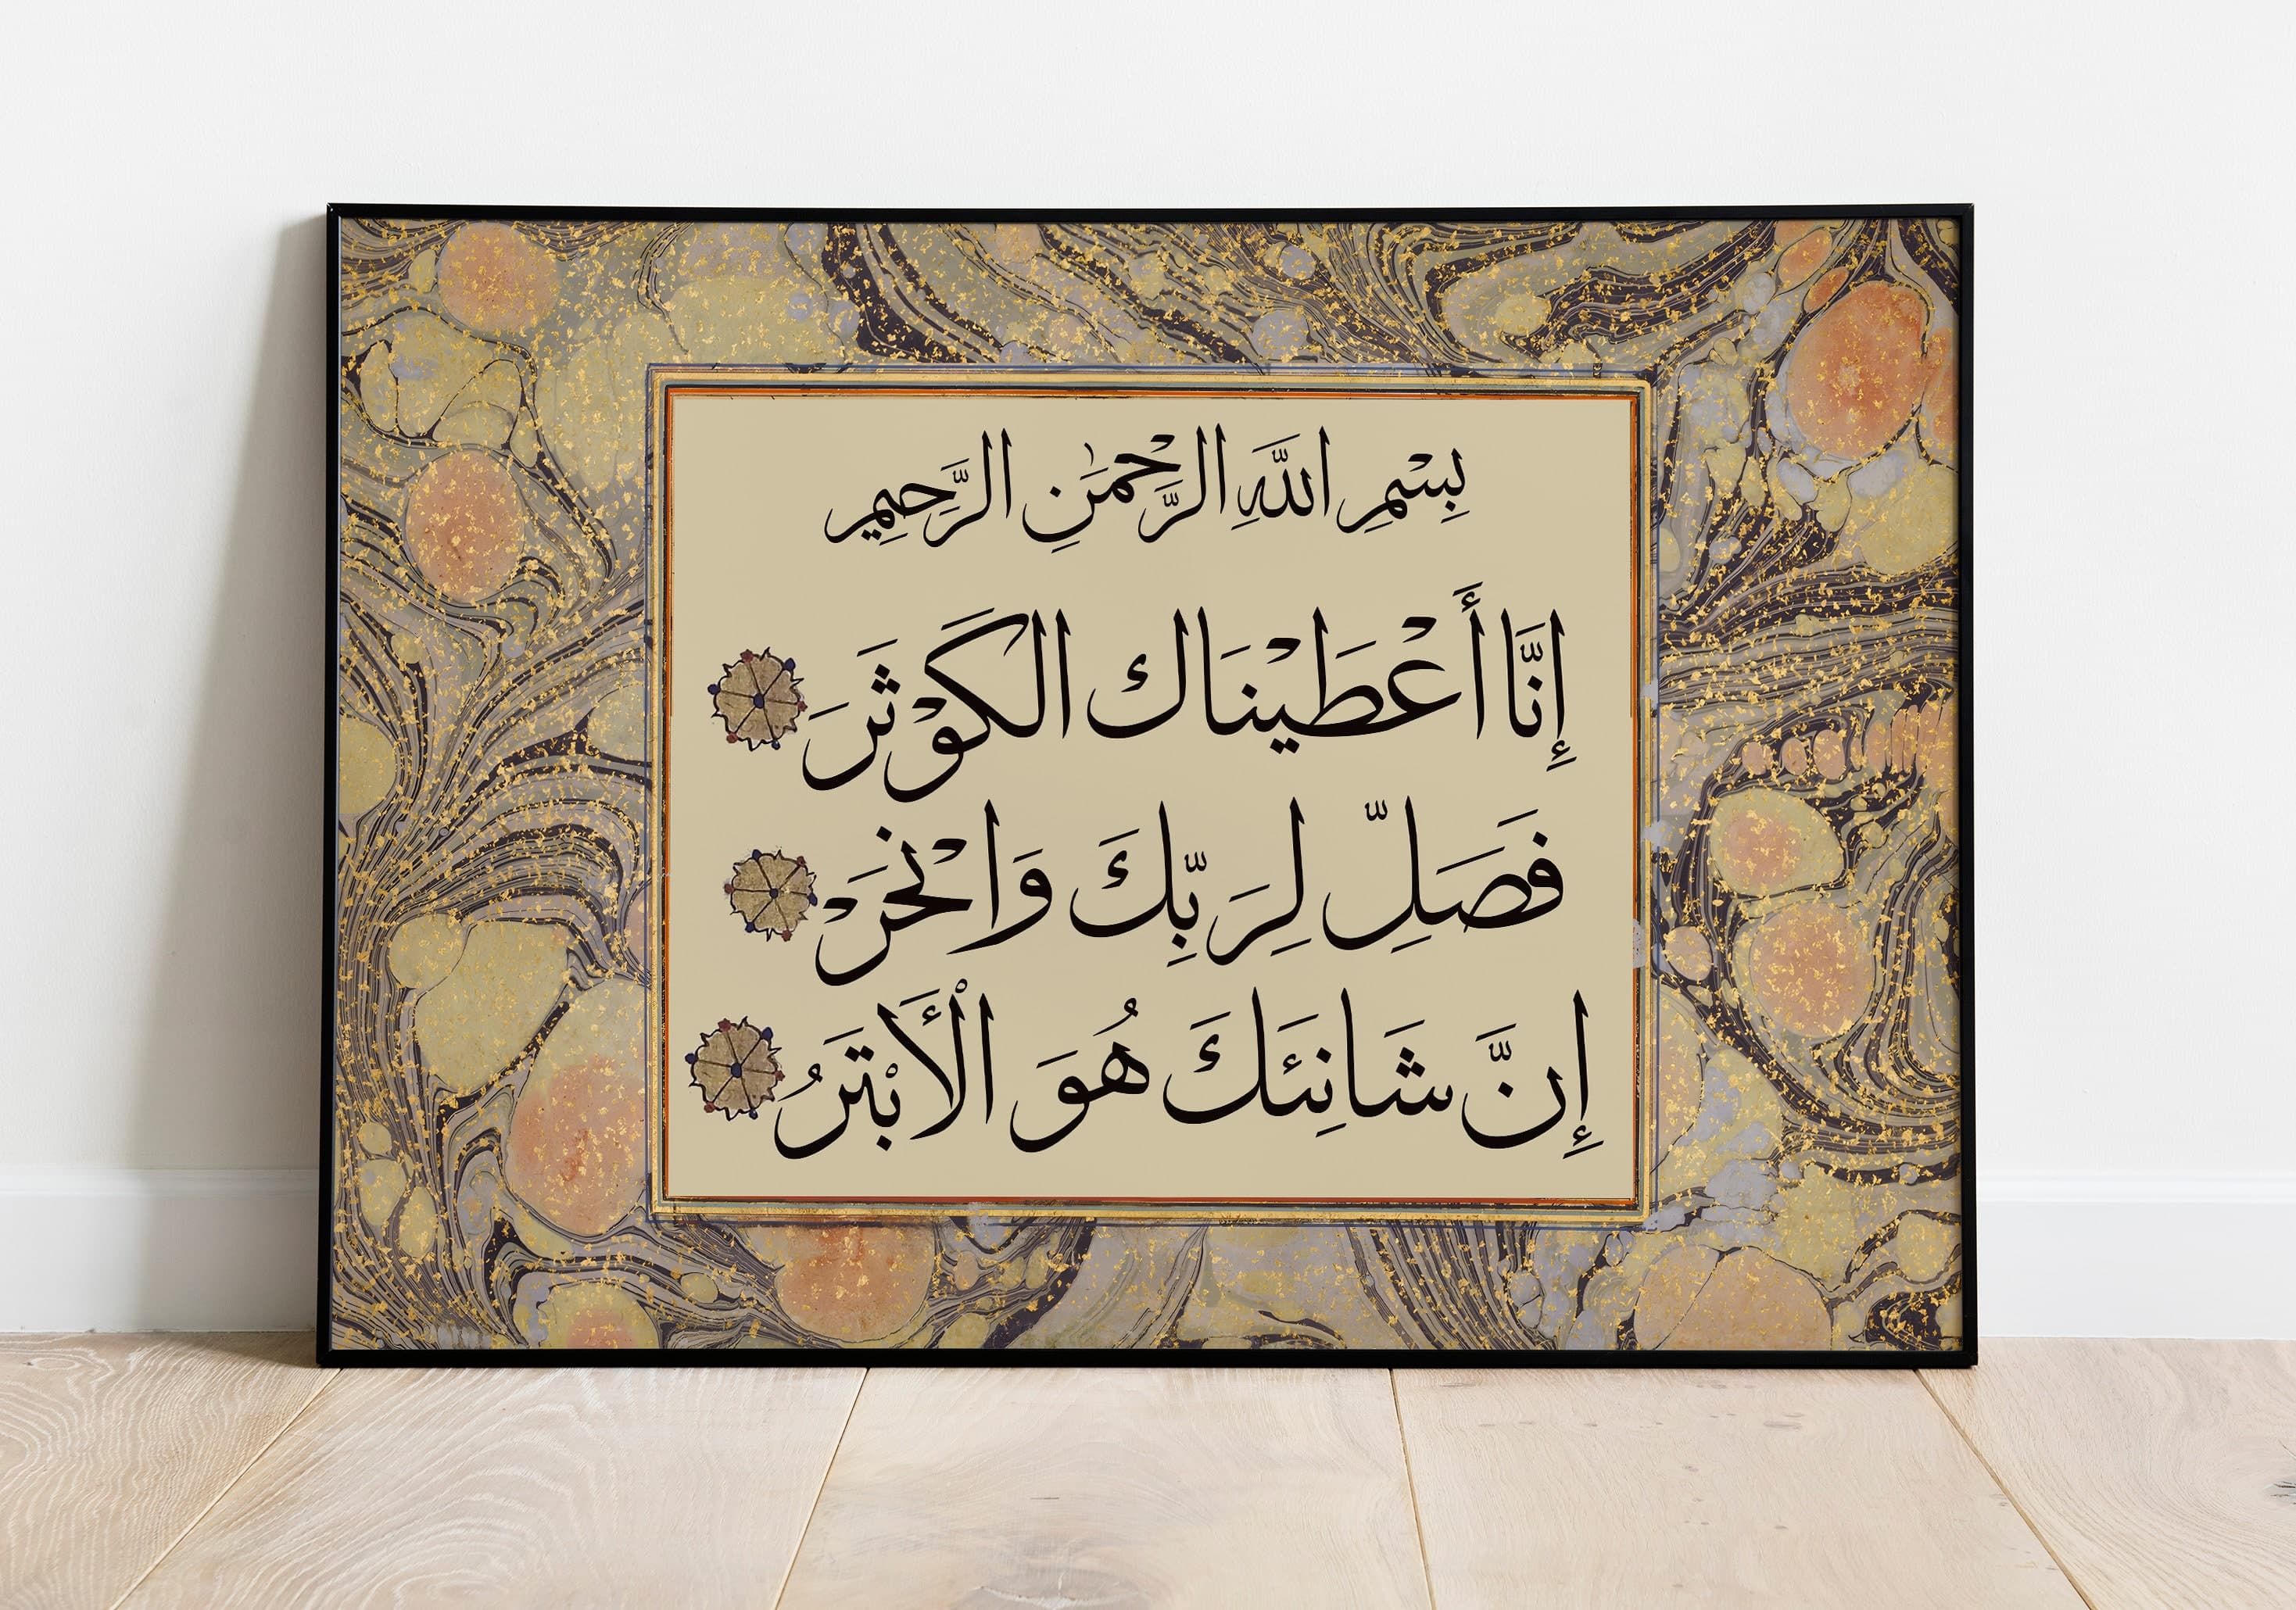 بِسْمِ اللَّهِ الرَّحْمَٰنِ الرَّحِيمِ
إِنَّا أَعْطَيْنَاكَ الكَوْثَرَ
فَصَلِّ لِرَبِّكَ وَانْحَرْ
إِنَّ شَانِئَكَ هُوَ الْأَبْتَرُ